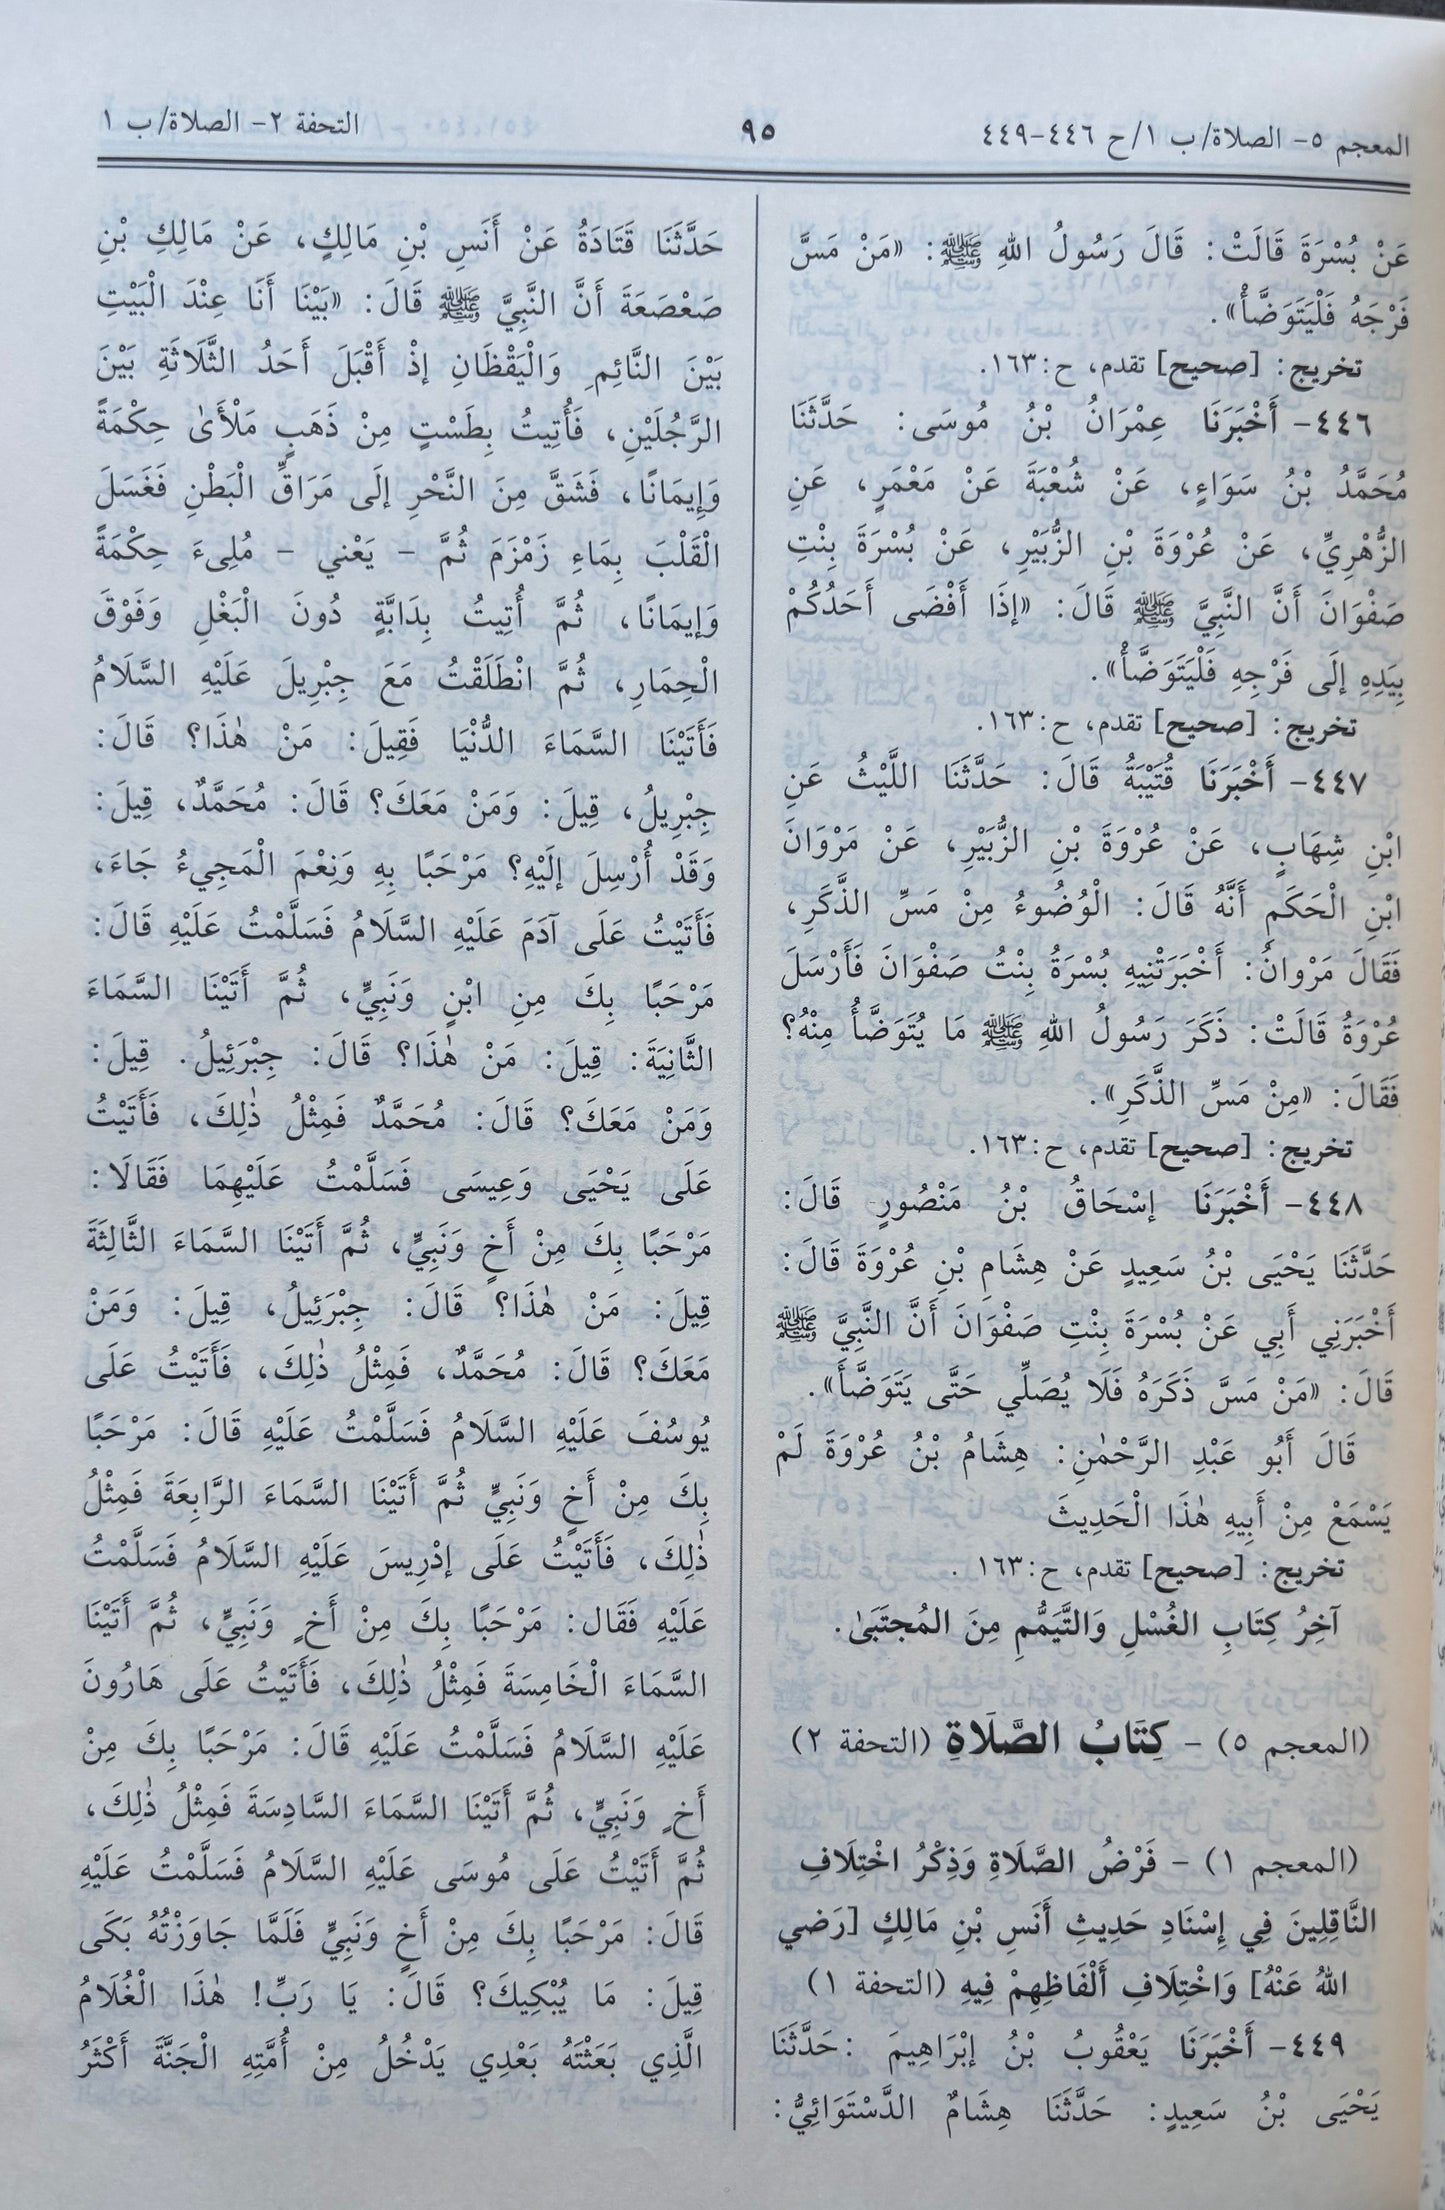 المعجم ٥- الصلاة/ ب ١/ ح ٤٤٦-٤٤٩
٩٥
التحفة ٢- الصلاة/ ب ١
عَنْ بُسْرَةَ قَالَتْ: قَالَ رَسُولُ اللهِ ﷺ: «مَنْ مَسَّ
فَرْجَهُ فَلْيَتَوَضَّأْ».
تخريج: [صحيح] تقدم، ح:١٦٣.
٤٤٦- أَخْبَرَنَا عِمْرَانُ بْنُ مُوسَى: حَدَّثَنَا
مُحَمَّدُ بْنُ سَوَاءٍ، عَنْ شُعْبَةَ عَنْ مَعْمَرٍ، عَنِ
الزُّهْرِيِّ، عَنْ عُرْوَةَ بْنِ الزُّبَيْرِ، عَنْ بُسْرَةَ بِنْتِ
صَفْوَانَ أَنَّ النَّبِيَّ ﷺ قَالَ: «إِذَا أَفْضَى أَحَدُكُمْ
بِيَدِهِ إِلَى فَرْجِهِ فَلْيَتَوَضَّأْ».
تخريج: [صحيح] تقدم، ح:١٦٣.
٤٤٧- أَخْبَرَنَا قُتَيْبَةُ قَالَ: حَدَّثَنَا اللَّيْثُ عَنِ
ابْنِ شِهَابٍ، عَنْ عُرْوَةَ بْنِ الزُّبَيْرِ، عَنْ مَرْوَانَ
ابْنِ الْحَكَمِ أَنَّهُ قَالَ: الْوُضُوءُ مِنْ مَسِّ الذَّكَرِ،
فَقَالَ مَرْوانُ: أَخْبَرَتْنِيهِ بُسْرَةُ بِنْتُ صَفْوَانَ فَأَرْسَلَ
عُرْوَةُ قَالَتْ: ذَكَرَ رَسُولُ اللهِ ﷺ مَا يُتَوَضَّأُ مِنْهُ؟
فَقَالَ: «مِنْ مَسِّ الذَّكَرِ».
تخريج: [صحيح] تقدم، ح:١٦٣.
٤٤٨- أَخْبَرَنَا إِسْحَاقُ بْنُ مَنْصُورٍ قَالَ:
حَدَّثَنَا يَحْيَى بْنُ سَعِيدٍ عَنْ هِشَامِ بْنِ عُرْوَةَ قَالَ:
أَخْبَرَنِي أَبِي عَنْ بُسْرَةَ بِنْتِ صَفْوَانَ أَنَّ النَّبِيَّ ﷺ
قَالَ: «مَنْ مَسَّ ذَكَرَهُ فَلَا يُصَلِّي حَتَّى يَتَوَضَّأَ».
قَالَ أَبُو عَبْدِ الرَّحْمٰنِ: هِشَامُ بْنُ عُرْوَةَ لَمْ
يَسْمَعْ مِنْ أَبِيهِ هٰذَا الْحَدِيثَ
تخريج: [صحيح] تقدم، ح:١٦٣ .
آخِرُ كِتَابِ الغُسْلِ وَالتَّيَمُّمِ مِنَ المُجتَبَىٰ.
(المعجم ٥) - كِتَابُ الصَّلَاةِ (التحفة ٢)
(المعجم ١) - فَرْضُ الصَّلَاةِ وَذِكْرُ اخْتِلَافِ
النَّاقِلِينَ فِي إِسْنَادِ حَدِيثِ أَنَسِ بْنِ مَالِكٍ [رَضي
اللهُ عَنْهُ] وَاخْتِلَافِ أَلْفَاظِهِمْ فِيهِ (التحفة ١)
٤٤٩- أَخْبَرَنَا يَعْقُوبُ بْنُ إِبْرَاهِيمَ :حَدَّثَنَا
يَحْيَى بْنُ سَعِيدٍ: حَدَّثَنَا هِشَامٌ الدَّسْتَوَائِيُّ:
حَدَّثَنَا قَتَادَةُ عَنْ أَنَسِ بْنِ مَالِكٍ، عَنْ مَالِكِ بْنِ
صَعْصَعَةَ أَنَّ النَّبِيَّ ﷺ قَالَ: «بَيْنَا أَنَا عِنْدَ الْبَيْتِ
بَيْنَ النَّائِمِ وَالْيَقْظَانِ إِذْ أَقْبَلَ أَحَدُ الثَّلَاثَةِ بَيْنَ
الرَّجُلَيْنِ، فَأُتِيتُ بِطَسْتٍ مِنْ ذَهَبٍ مَلْأَىٰ حِكْمَةً
وَإِيمَانًا، فَشَقَّ مِنَ النَّحْرِ إِلَى مَرَاقِّ الْبَطْنِ فَغَسَلَ
الْقَلْبَ بِمَاءِ زَمْزَمَ ثُمَّ - يَعْني - مُلِىءَ حِكْمَةً
وَإِيمَانًا، ثُمَّ أُتِيتُ بِدَابَّةٍ دُونَ الْبَغْلِ وَفَوْقَ
الْحِمَارِ، ثُمَّ انْطَلَقْتُ مَعَ جِبْرِيلَ عَلَيْهِ السَّلَامُ
فَأَتَيْنَا السَّمَاءَ الدُّنْيَا فَقِيلَ: مَنْ هٰذَا؟ قَالَ:
جِبْرِيلُ، قِيلَ: وَمَنْ مَعَكَ؟ قَالَ: مُحَمَّدٌ، قِيلَ:
وَقَدْ أُرْسِلَ إِلَيْهِ؟ مَرْحَبًا بِهِ وَنِعْمَ الْمَجِيءُ جَاءَ،
فَأَتَيْتُ عَلَى آدَمَ عَلَيْهِ السَّلَامُ فَسَلَّمْتُ عَلَيْهِ قَالَ:
مَرْحَبًا بِكَ مِنِ ابْنٍ وَنَبِيٍّ، ثُمَّ أَتَيْنَا السَّمَاءَ
الثَّانِيَةَ: قِيلَ: مَنْ هٰذَا؟ قَالَ: جِبْرَئِيلُ. قِيلَ:
وَمَنْ مَعَكَ؟ قَالَ: مُحَمَّدٌ فَمِثْلُ ذٰلِكَ، فَأَتَيْتُ
عَلَى يَحْيَى وَعِيسَى فَسَلَّمْتُ عَلَيْهِمَا فَقَالَا:
مَرْحَبًا بِكَ مِنْ أَخٍ وَنَبِيٍّ، ثُمَّ أَتَيْنَا السَّمَاءَ الثَّالِثَةَ
قِيلَ: مَنْ هٰذَا؟ قَالَ: جِبْرَئِيلُ، قِيلَ: وَمَنْ
مَعَكَ؟ قَالَ: مُحَمَّدٌ، فَمِثْلُ ذٰلِكَ، فَأَتَيْتُ عَلَى
يُوسُفَ عَلَيْهِ السَّلَامُ فَسَلَّمْتُ عَلَيْهِ قَالَ: مَرْحَبًا
بِكَ مِنْ أَخٍ وَنَبِيٍّ ثُمَّ أَتَيْنَا السَّمَاءَ الرَّابِعَةَ فَمِثْلُ
ذٰلِكَ، فَأَتَيْتُ عَلَى إِدْرِيسَ عَلَيْهِ السَّلَامُ فَسَلَّمْتُ
عَلَيْهِ فَقَال: مَرْحَبًا بِكَ مِنْ أَخٍ وَنَبِيٍّ، ثُمَّ أَتَيْنَا
السَّمَاءَ الْخَامِسَةَ فَمِثْلُ ذٰلِكَ، فَأَتَيْتُ عَلَى هَارُونَ
عَلَيْهِ السَّلَامُ فَسَلَّمْتُ عَلَيْهِ قَالَ: مَرْحَبًا بِكَ مِنْ
أَخٍ وَنَبِيٍّ، ثُمَّ أَتَيْنَا السَّمَاءَ السَّادِسَةَ فَمِثْلُ ذٰلِكَ،
ثُمَّ أَتَيْتُ عَلَى مُوسَى عَلَيْهِ السَّلَامُ فَسَلَّمْتُ عَلَيْهِ
قَالَ: مَرْحَبًا بِكَ مِنْ أَخٍ وَنَبِيٍّ فَلَمَّا جَاوَزْتُهُ بَكَى
قِيلَ: مَا يُبْكِيكَ؟ قَالَ: يَا رَبِّ! هٰذَا الْغُلَامُ
الَّذِي بَعَثْتَهُ بَعْدِي يَدْخُلُ مِنْ أُمَّتِهِ الْجَنَّةَ أَكْثَرُ